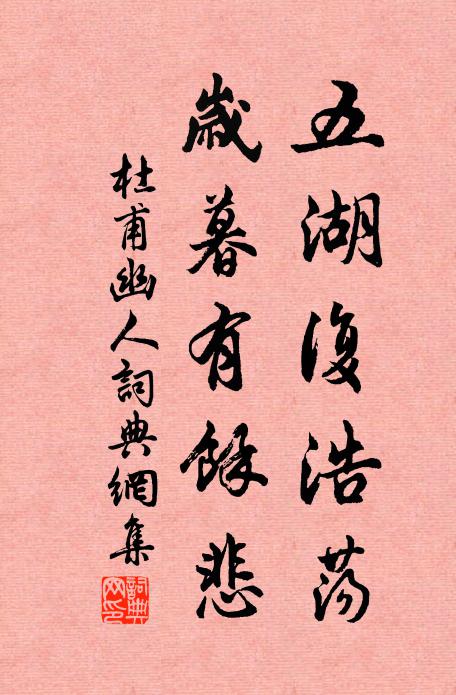 五湖復浩蕩
歲暮有餘悲
杜甫幽人詞典網集
詞典網印